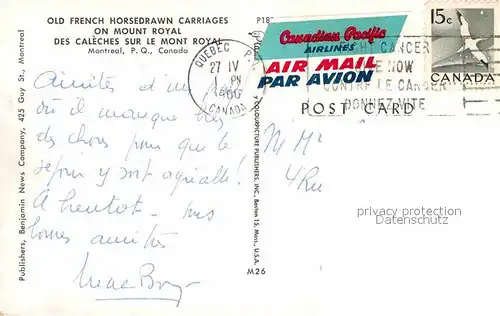 OLD FRENCH HORSEDRAWN CARRIAGES
ON MOUNT ROYAL
DES CALÈCHES SUR LE MONT ROYAL
Montreal, P. Q., Canada
Publishers, Benjamin News Company, 425 Guy St., Montreal
P18
Canadian Pacific
AIRLINES
AIR MAIL
PAR AVION
QUÉBEC P.
27 IV
PM
CANADA
15c
CANADA
CANCER
NOW
CONTRE LE CANCER
DONNEZ VITE
POST CARD
COLOURPICTURE PUBLISHERS, INC., Boston 15, Mass., U.S.A.
M26
Amitiés d'un
où il manque
des choses pour que le
séjour y soit agréable!
A bientôt - mes
bonnes amitiés
privacy protection